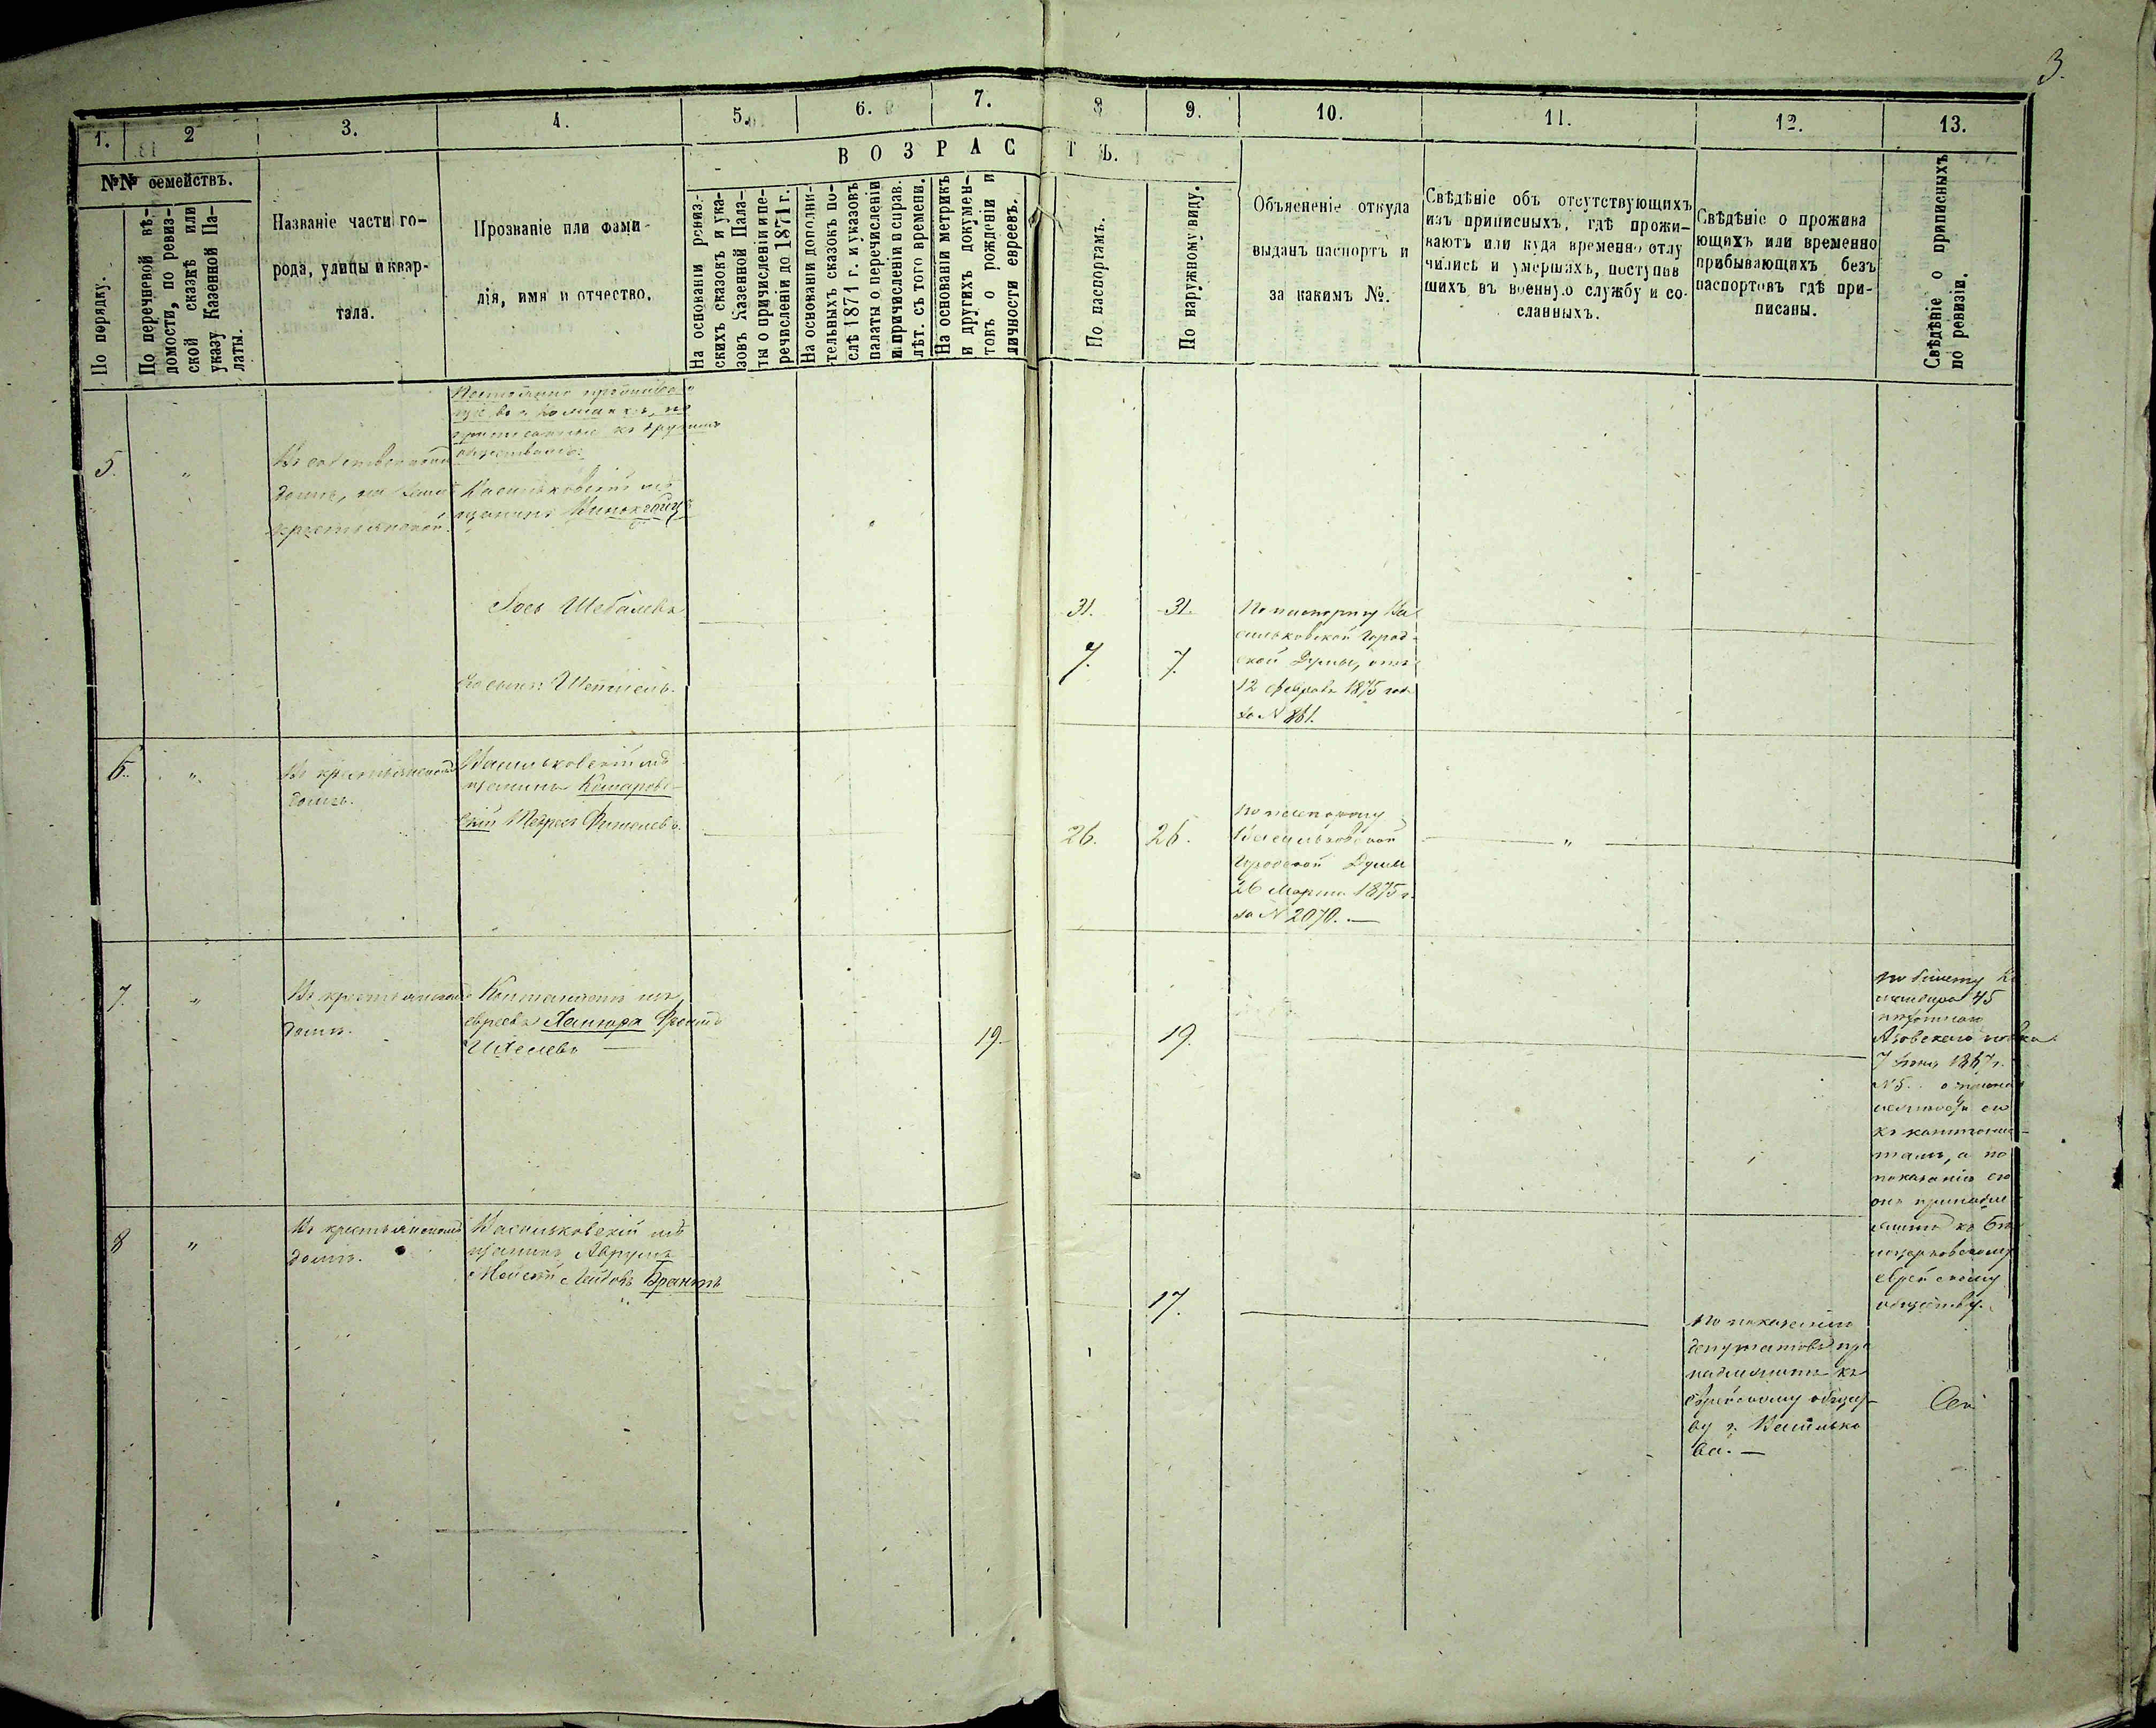 3.
1.
2
3.
4.
5.
6.
7.
8
9.
10.
11.
12.
13.
№№ семействъ.
В О З Р А С Т Ъ.
По порядку.
По перечневой вѣ-
домости, по ревиз-
ской сказкѣ или
указу Казенной Па-
латы.
Названіе части го-
рода, улицы и квар-
тала.
Прозваніе или фами-
лія, имя и отчество.
На основаніи ревиз-
скихъ сказокъ и ука-
зовъ Казенной Пала-
ты о причисленіи и пе-
речисленіи до 1871 г.
На основаніи дополни-
тельныхъ сказокъ по-
слѣ 1871 г. и указовъ
палаты о перечисленіи
и причисленіи и справ.
лѣт. съ того времени.
На основаніи метрикъ
и другихъ докумен-
товъ о рожденіи и
личности евреевъ.
По паспортамъ.
По наружному виду.
Объясненіе откуда
выданъ паспортъ и
за какимъ №.
Свѣдѣніе объ отсутствующихъ
изъ приписныхъ, гдѣ прожи-
ваютъ или куда временно отлу
чились и умершихъ, поступив
шихъ въ военную службу и со-
сланныхъ.
Свѣдѣніе о прожива
ющихъ или временно
прибывающихъ безъ
паспортовъ гдѣ при-
писаны.
Свѣдѣніе о приписныхъ
по ревизіи.
приписанные къ другимъ
обществамъ:
5.
"
Въ собственномъ
домѣ, на
крестьянской.
Васильковскій мѣ
щанинъ
Іось
31.
31.
По паспорту Ва
сильковской Город-
ской Думы, отъ
12 Февраля 1875 года
за N 861.
7.
7.
6.
"
Въ крестьянскомъ
домѣ.
Васильковскій мѣ
щанинъ Комаров-
скій
26.
26.
По паспорту
Васильковской
Городской Думы
26 Марта 1875 г.
за N 2070. —
"
7.
"
Въ крестьянскомъ
домѣ.
Кантонистъ изъ
евреевъ
19.
19.
По билету Ко
мандира 45
пѣхотнаго
Азовскаго полка
7 1867 г.
N 5.
его
къ кантонис-
тамъ, а по
показанію его
онъ принадле
житъ къ Бѣ
лоцерковскому
еврейскому
обществу.
8
"
Въ крестьянскомъ
домѣ.
Васильковскій мѣ
щанинъ Аврумъ
Брантъ
17.
По показанію
депутатовъ при
надлежитъ къ
еврейскому общест-
ву г. Василько
ва. —